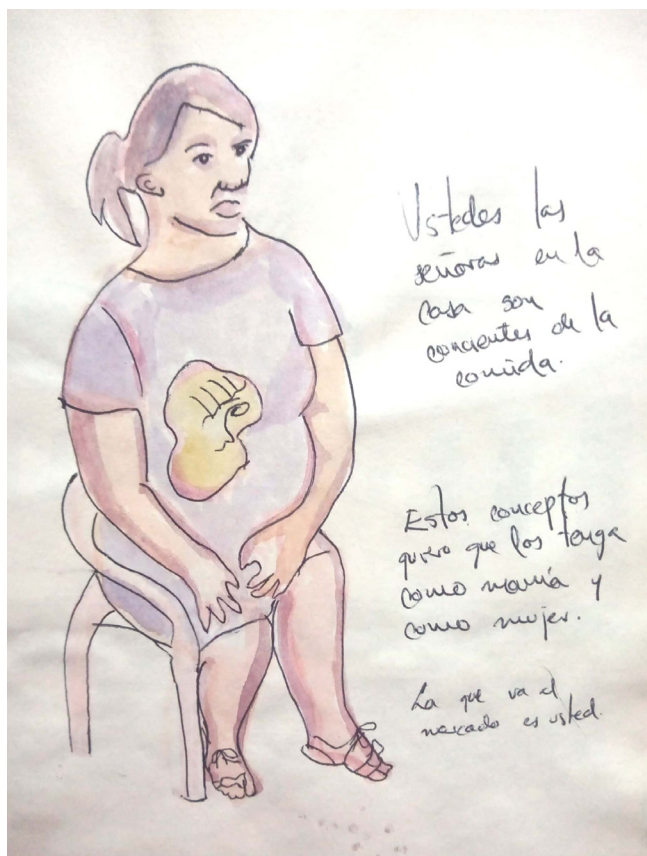 Ustedes las
señoras en la
casa son
concientes de la
comida.
Estos conceptos
quiero que los tenga
como mamá y
como mujer.
La que va al
mercado es usted.